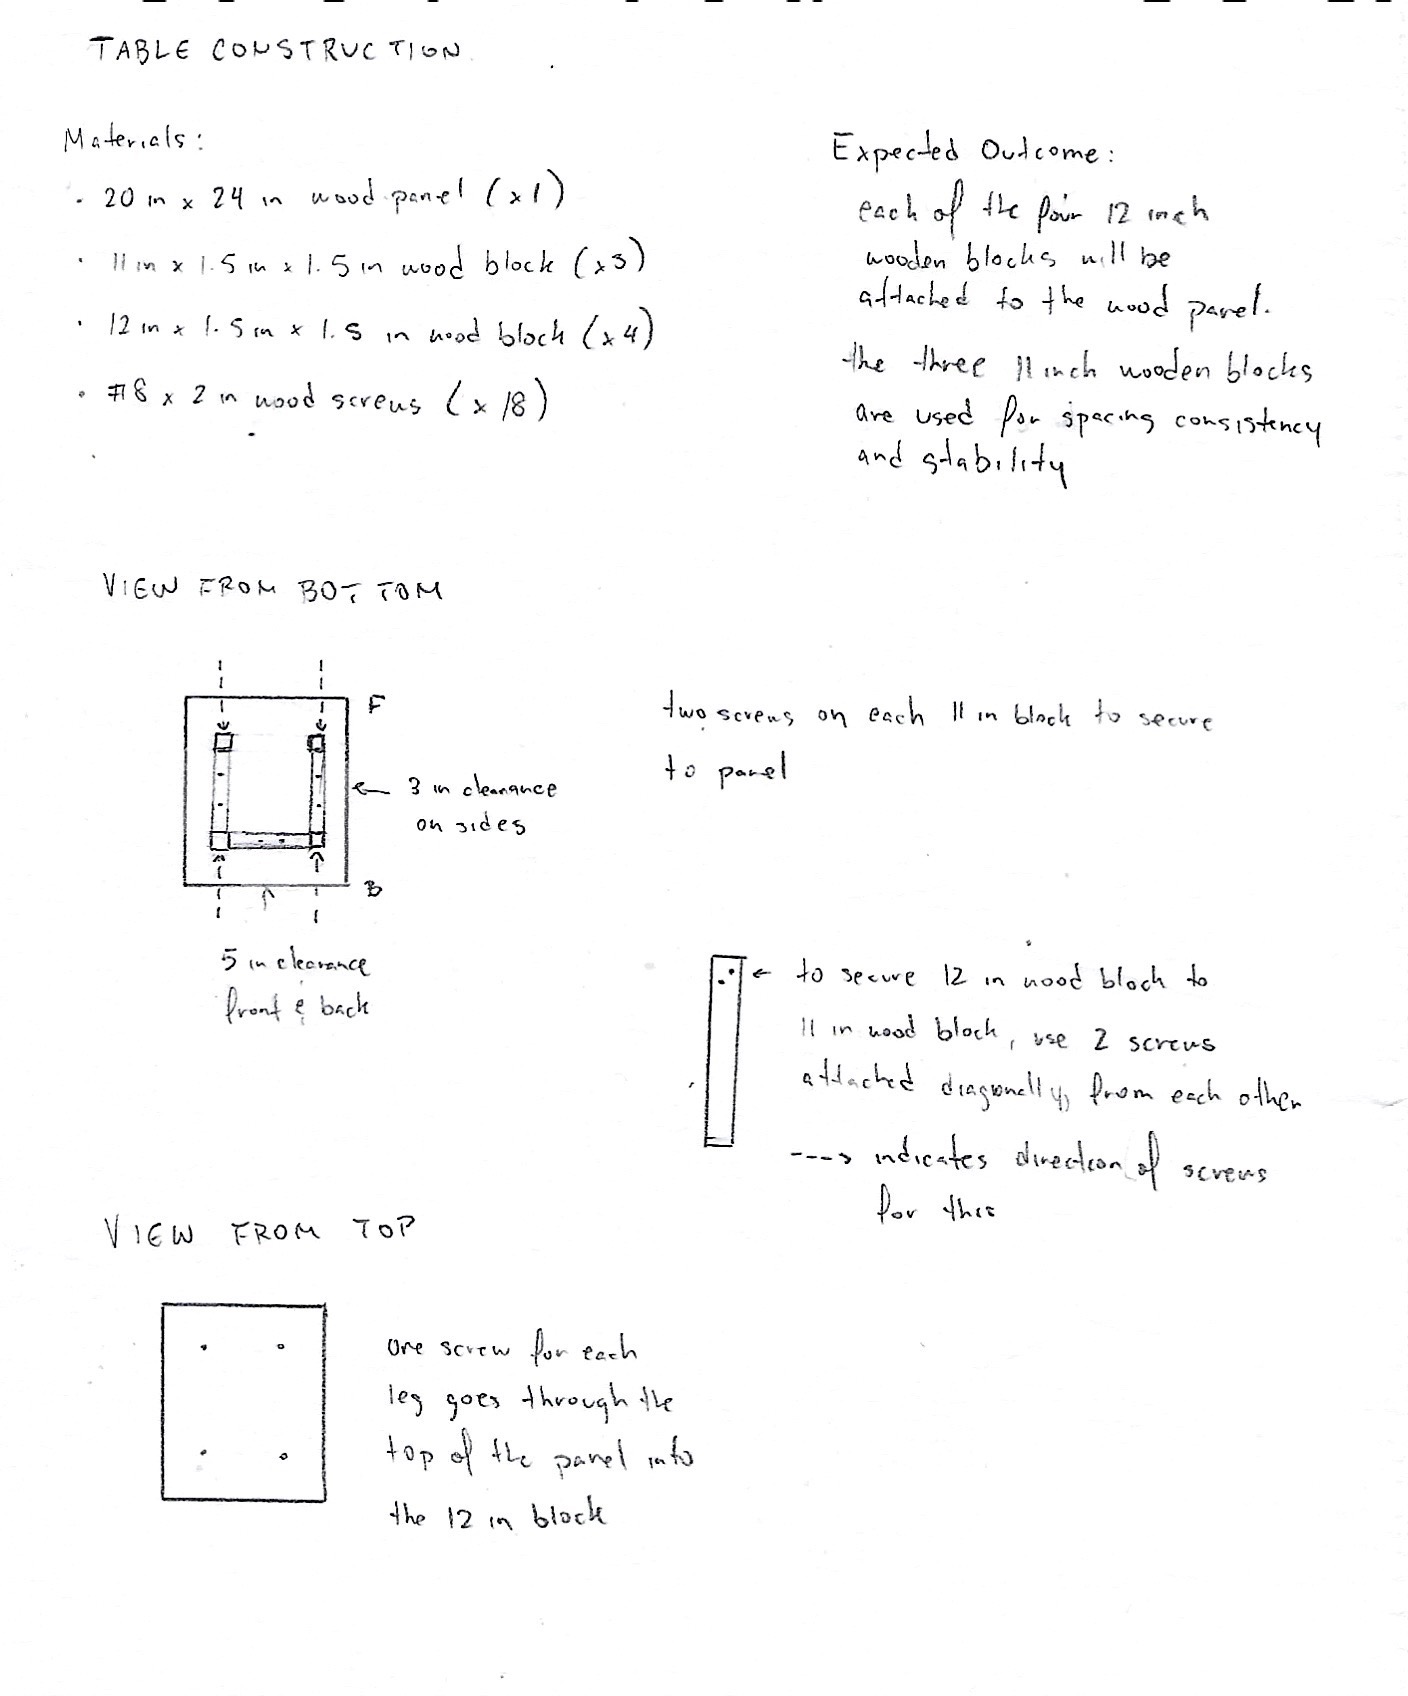 TABLE CONSTRUCTION
Materials:
· 20 in x 24 in wood panel (x1)
· 11 in x 1.5 in x 1.5 in wood block (x3)
· 12 in x 1.5 in x 1.5 in wood block (x4)
· #8 x 2 in wood screws (x 18)
Expected Outcome:
each of the four 12 inch
wooden blocks will be
attached to the wood panel.
the three 11 inch wooden blocks
are used for spacing consistency
and stability
VIEW FROM BOTTOM
F
3 in clearance
on sides
B
5 in clearance
front & back
two screws on each 11 in block to secure
to panel
to secure 12 in wood block to
11 in wood block, use 2 screws
attached diagonally, from each other
----> indicates direction of screws
for this
VIEW FROM TOP
one screw for each
leg goes through the
top of the panel into
the 12 in block